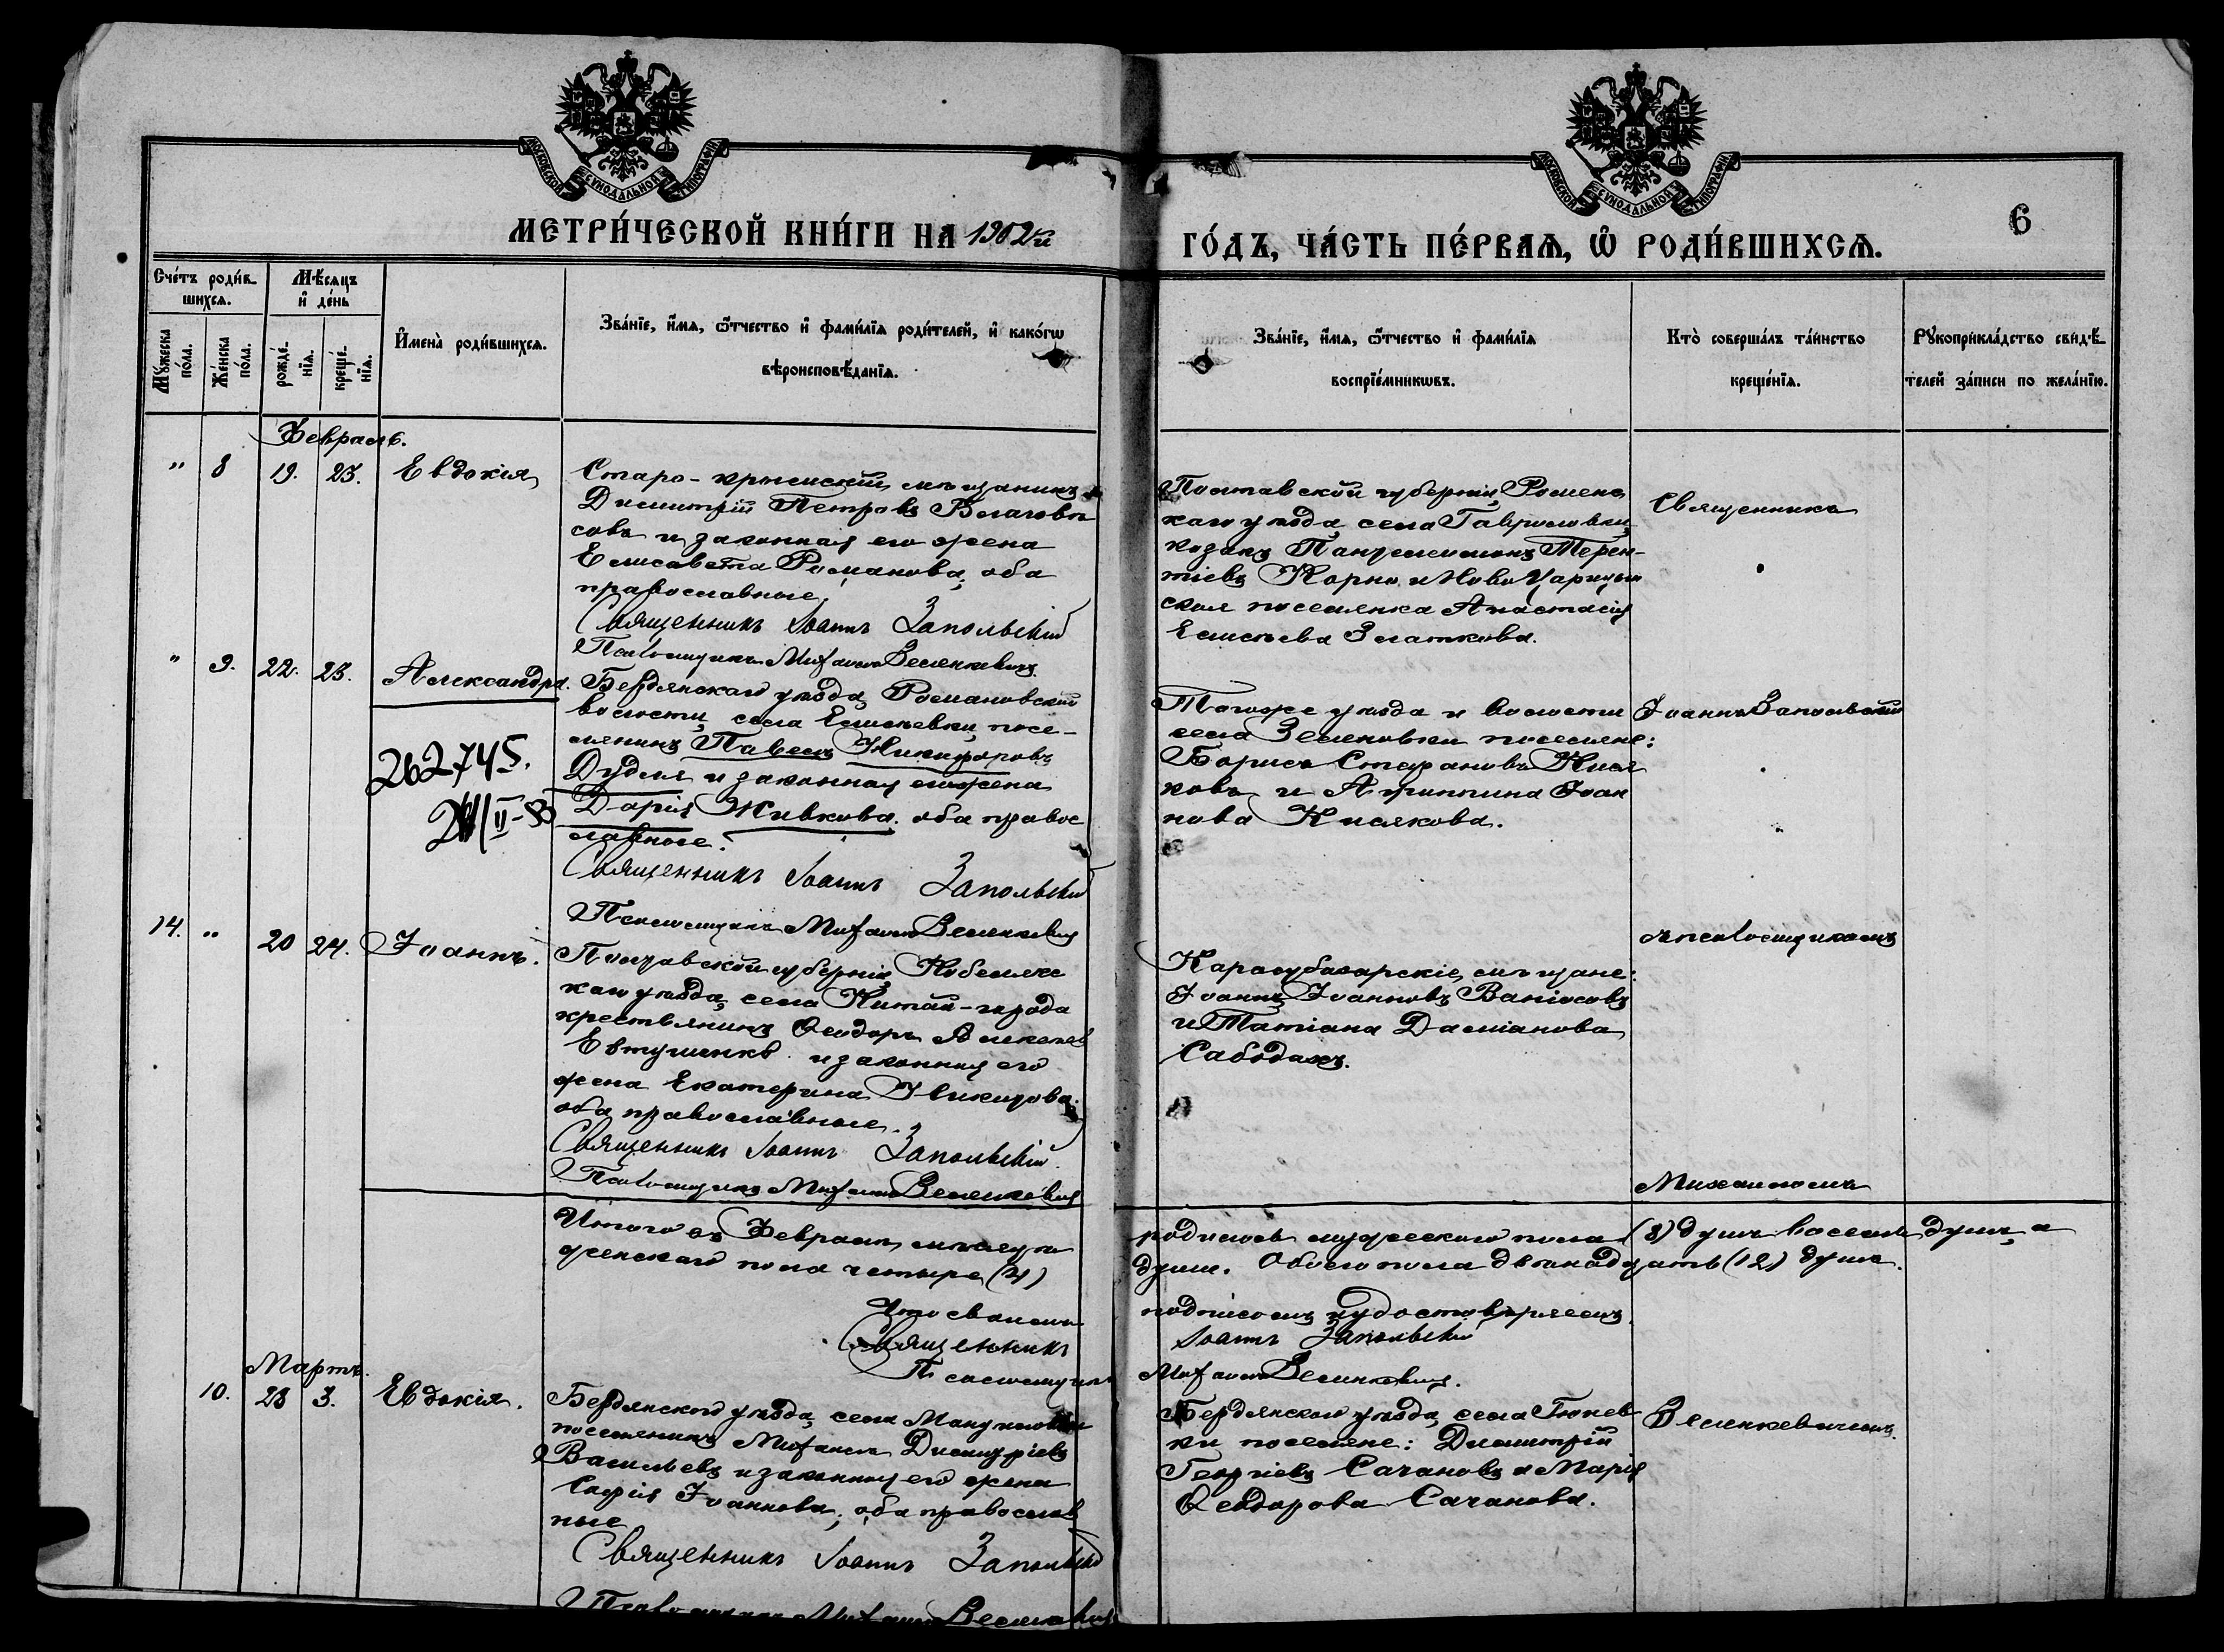 МОСКОВСКОЙ СУНОДАЛЬНОЙ ТИПОГРАФІИ
МОСКОВСКОЙ СУНОДАЛЬНОЙ ТИПОГРАФІИ
МЕТРИ́ЧЕСКОЙ КНИ́ГИ НА 1902й
ГО́ДЪ, ЧА́СТЬ ПЕ́РВАѦ, Ѡ РОДИ́ВШИХСѦ.
6
Сче́тъ роди́в-
шихсѧ.
Мꙋ́жеска по́ла.
Же́нска по́ла.
Мѣ́сѧцъ
и де́нь
рожде́-нїѧ.
креще́-нїѧ.
Имена̀ роди́вшихсѧ.
Зва́нїе, и́мѧ, ѻ́тчество и фами́лїѧ роди́телей, и како́гѡ
вѣроисповѣ́данїѧ.
Зва́нїе, и́мѧ, ѻ́тчество и фами́лїѧ
воспрїе́мникѡвъ.
Кто̀ соверша́лъ та́инство
креще́нїѧ.
Рꙋкоприкла́дство свидѣ́-
телей за́писи по жела́нїю.
Февраль.
" 8 19. 23. Евдокія
Старо-крымскій мѣщанинъ
Димитрій Петровъ
совъ и законная его жена
Елисавета Романова, оба
православные.
Священникъ Іоаннъ Запольскій
Псаломщикъ Михаилъ Веленкевичъ
Полтавской губерніи, Ромен-
каго уѣзда, села Гавриловки,
козакъ Пантелеимонъ Терен-
тіевъ Корно и Ново Царицын
ская поселянка Анастасія
Елисѣева Златкова.
Священникъ
" 9. 22. 23. Александра.
Бердянскаго уѣзда, Романовской
волости, села Елисѣевки, посе-
лянинъ Павелъ Никифоровъ
Дудля и законная его жена
Дарія Живкова. оба правос
лавные.
Священникъ Іоаннъ Запольскій
Псаломщикъ Михаилъ Веленкевичъ
262745.
Тогоже уѣзда и волости
села Зеленовки поселяне:
Борисъ Стефановъ Кися
ковъ и Агриппина Іоан
нова Кисякова.
Іоаннъ Запольскій
14. " 20 24. Іоаннъ.
Полтавской губерніи, Кобеляк
каго уѣзда, села Китай-города
крестьянинъ Ѳеодоръ Алексѣевъ
Евтушенко и законная его
жена Екатерина
оба православные.
Священникъ Іоаннъ Запольскій.
Псаломщикъ Михаилъ Веленкевичъ
Карасубазарскіе мѣщане:
Іоаннъ Іоанновъ Ваніосовъ
и Татіана Даміанова
Сабодахъ.
съ псаломщикомъ
Михаиломъ
Итого въ Февралѣ мѣсяцѣ
родилось мужескаго пола (8) душъ восемь душъ, а
женскаго пола четыре (4)
души. Обоего пола двѣнадцать (12) душъ.
Что своимъ
подписомъ удостовѣряемъ.
Священникъ
Іоаннъ Запольскій
Псаломщикъ
Михаилъ Веленкевичъ.
Мартъ.
10. 23 3. Евдокія.
Бердянскаго уѣзда, села Мануйловки
поселянинъ Михаилъ Димитріевъ
Васильевъ и законная его жена
Софія Іоаннова, оба православ
ные
Священникъ Іоаннъ Запольскій
Псаломщикъ Михаилъ Веленкевичъ
Бердянскаго уѣзда, села Гюнев-
ки поселяне: Димитрій
Георгіевъ Сачановъ и Марія
Ѳеодорова Сачанова.
Веленкевичемъ.